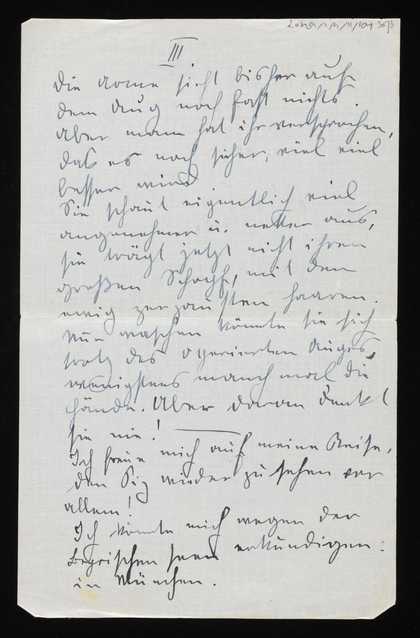 III.
die arme sieht bisher auf
dem Aug noch fast nichts.
Aber man hat ihr versprochen,
das es noch sicher, viel viel
besser wird
Sie schaut eigentlich viel
angenehmer u. netter aus,
sie trägt jetzt nicht ihren
großen Schopf, mit den
ewig zerzausten haaren.
Nur waschen könnte sie sich
trotz des operierten Auges,
wenigstens manchmal die
Hände. Aber daran denkt
sie nie!
Ich freue mich auf meine Reise,
den wieder zu sehen vor
allem!
Ich könnte mich wegen der
Bayrischen seen erkundigen:
in München.